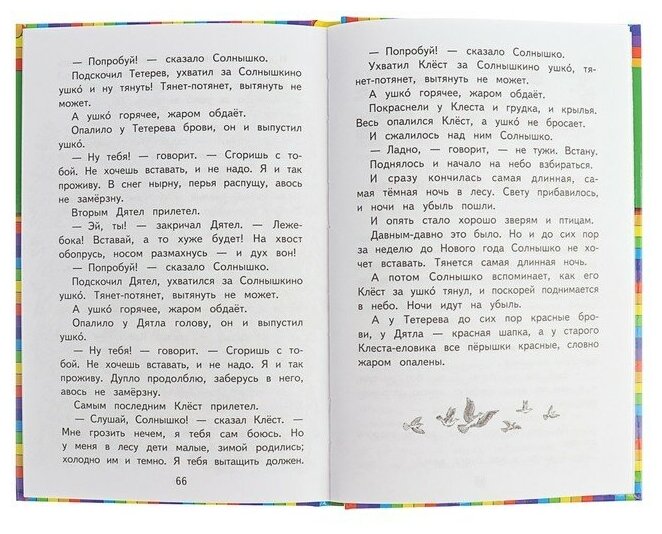 — Попробуй! — сказало Солнышко.
Подскочил Тетерев, ухватил за Солнышкино
ушко́ и ну тянуть! Тянет-потянет, вытянуть не
может.
А ушко́ горячее, жаром обдаёт.
Опалило у Тетерева брови, он и выпустил
ушко́.
— Ну тебя! — говорит. — Сгоришь с то-
бой. Не хочешь вставать, и не надо. Я и так
проживу. В снег нырну, перья распущу, авось
не замёрзну.
Вторым Дятел прилетел.
— Эй, ты! — закричал Дятел. — Леже-
бока! Вставай, а то хуже будет! На хвост
обопрусь, носом размахнусь — и дух вон!
— Попробуй! — сказало Солнышко.
Подскочил Дятел, ухватился за Солнышкино
ушко́. Тянет-потянет, вытянуть не может.
А ушко́ горячее, жаром обдаёт.
Опалило у Дятла голову, он и выпустил
ушко́.
— Ну тебя! — говорит. — Сгоришь с то-
бой. Не хочешь вставать, и не надо. Я и так
проживу. Дупло продолблю, заберусь в него,
авось не замёрзну.
Самым последним Клёст прилетел.
— Слушай, Солнышко! — сказал Клёст. —
Мне грозить нечем, я тебя сам боюсь. Но
у меня в лесу дети малые, зимой родились;
холодно им и темно. Я тебя вытащить должен.
66
— Попробуй! — сказало Солнышко.
Ухватил Клёст за Солнышкино ушко́, тя-
нет-потянет, вытянуть не может.
А ушко́ горячее, жаром обдаёт.
Покраснели у Клеста и грудка, и крылья.
Весь опалился Клёст, а ушко́ не бросает.
И сжалилось над ним Солнышко.
— Ладно, — говорит, — не тужи. Встану.
Поднялось и начало на небо взбираться.
И сразу кончилась самая длинная, са-
мая тёмная ночь в лесу. Свету прибавилось,
и ночи на убыль пошли.
И опять стало хорошо зверям и птицам.
Давным-давно это было. Но и до сих пор
за неделю до Нового года Солнышко не хо-
чет вставать. Тянется самая длинная ночь.
А потом Солнышко вспоминает, как его
Клёст за ушко́ тянул, и поскорей поднимается
в небо. Ночи идут на убыль.
А у Тетерева до сих пор красные бро-
ви, у Дятла — красная шапка, а у старого
Клеста-еловика все пёрышки красные, словно
жаром опалены.